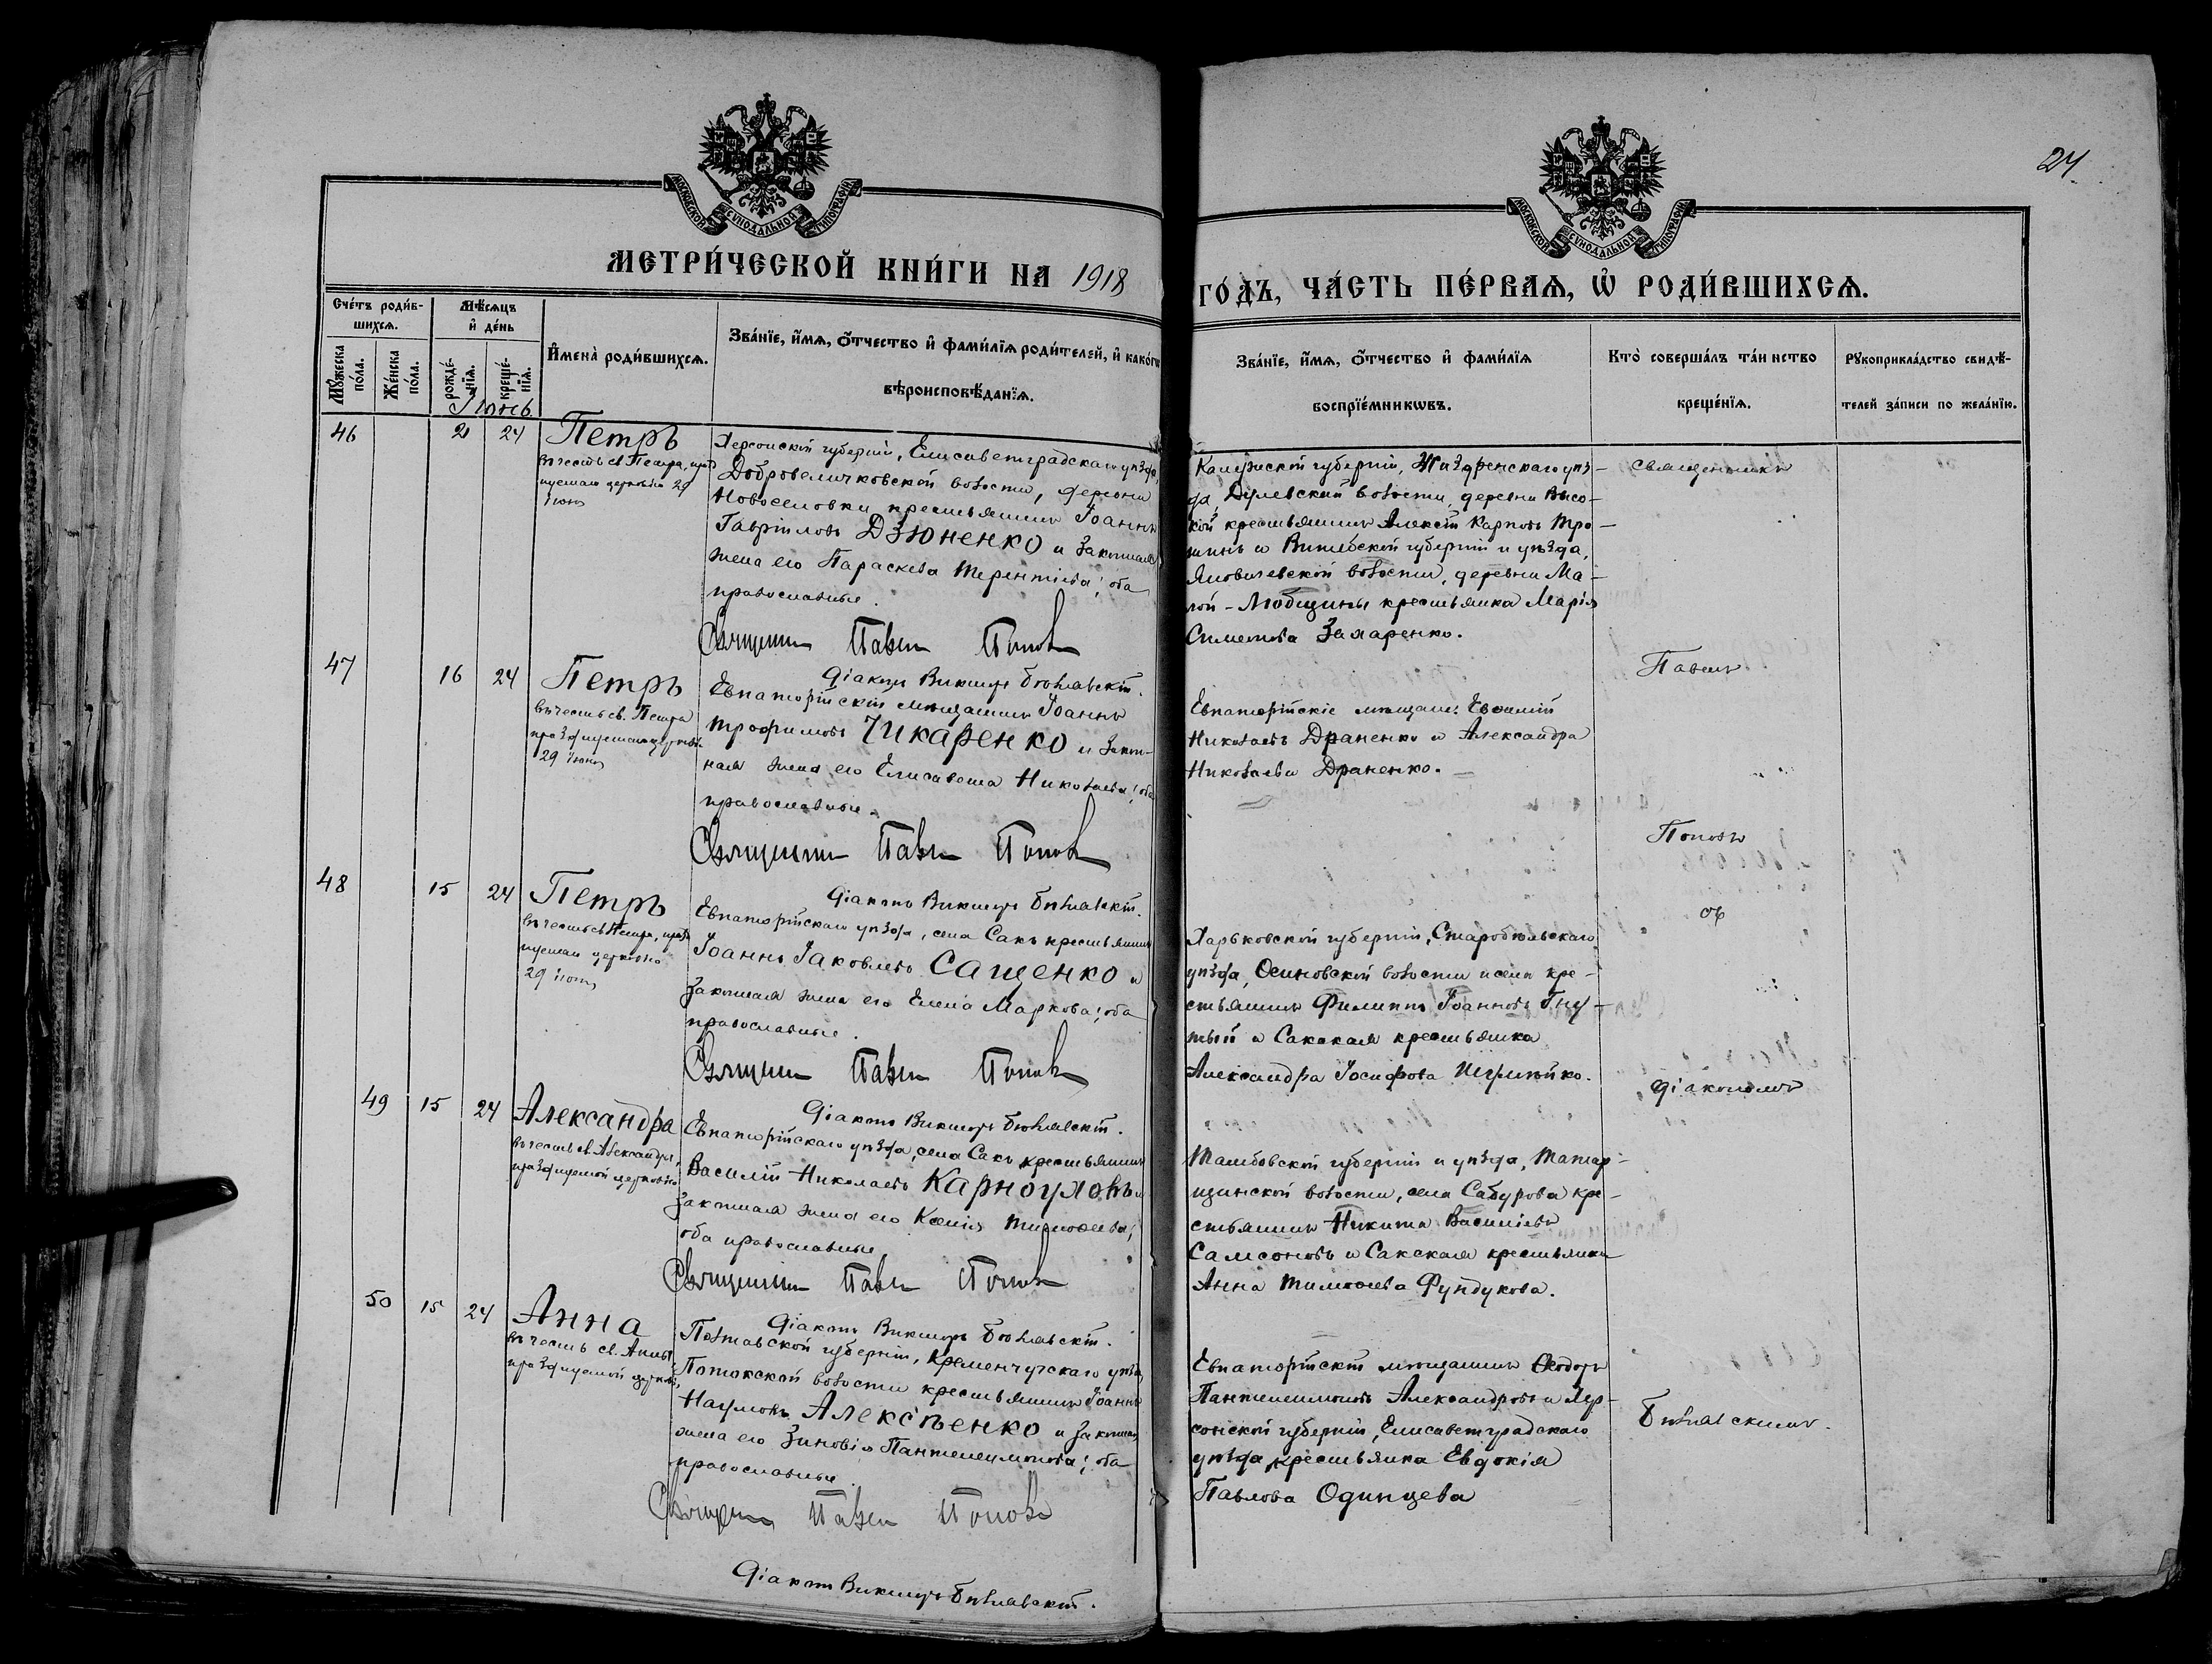 24
МОСКОВСКОЙ СѴНОДАЛЬНОЙ ТИПОГРАФІИ
МОСКОВСКОЙ СѴНОДАЛЬНОЙ ТИПОГРАФІИ
МЕТРИ́ЧЕСКОЙ КНИ́ГИ НА 1918
ГО́ДЪ, ЧА́СТЬ ПЕ́РВАѦ, Ѡ҆ РОДИ́ВШИХСѦ.
Сче́тъ роди́в-
шихсѧ.
Мѣ́сѧцъ
и҆ де́нь
Мꙋ́жеска по́ла.
Же́нска по́ла.
рожде́-нїѧ.
креще́-нїѧ.
И҆мена̀ роди́вшихсѧ.
Зва́нїе, и҆́мѧ, ѻ҆́тчество и҆ фами́лїѧ роди́телей, и҆ како́гѡ
вѣроисповѣ́данїѧ.
Зва́нїе, и҆́мѧ, ѻ҆́тчество и҆ фами́лїѧ
воспрїе́мникѡвъ.
Кто̀ соверша́лъ та́инство
креще́нїѧ.
Рꙋкоприкла́дство свидѣ́-
телей за́писи по жела́нїю.
Іюнь
46 21 24 Петръ
въ честь св. Петра, празд
нуемаго церковію 29
іюня
Херсонской губерніи, Елисаветградскаго уѣзда,
Добровеличковской волости, деревни
Новоселовки крестьянинъ Іоаннъ
Гавріиловъ Дзюненко и законная
жена его Параскева Терентіева; оба
православные.
Священникъ Павелъ Поповъ
Діаконъ Викторъ Бѣлявскій.
Калужской губерніи, Жиздренскаго уѣз-
да, Дулевской волости, деревни Высо-
кой крестьянинъ Алексій Карповъ Тро-
шинъ и Витебской губерніи и уѣзда,
Яновичевской волости, деревни Ма-
лой-Любщины крестьянка Марія
Симеонова Захаренко.
Священникъ
47 16 24 Петръ
въ честь св. Петра
празднуемаго церковію
29 іюня
Евпаторійскій мѣщанинъ Іоаннъ
Трофимовъ Чикаренко и закон-
ная жена его Елисавета Николаева; оба
православные.
Священникъ Павелъ Поповъ
Діаконъ Викторъ Бѣлявскій.
Евпаторійскіе мѣщане: Евѳимій
Николаевъ Драненко и Александра
Николаева Драненко.
Павелъ
Поповъ
48 15 24 Петръ
въ честь св. Петра, празд
нуемаго церковію
29 іюня
Евпаторійскаго уѣзда, села Сакъ крестьянинъ
Іоаннъ Іаковлевъ Сащенко и
законная жена его Елена Маркова; оба
православные.
Священникъ Павелъ Поповъ
Діаконъ Викторъ Бѣлявскій.
Харьковской губерніи, Старобѣльскаго
уѣзда, Осиновской волости и села кре-
стьянинъ Филиппъ Іоанновъ Гну-
тый и Сакская крестьянка
Александра Іосифова
съ
діакономъ
49 15 24 Александра
въ честь св. Александры,
празднуемой церковію
Евпаторійскаго уѣзда, села Сакъ крестьянинъ
Василій Николаевъ Карноуховъ и
законная жена его Ксенія Тимоѳеева;
оба православные.
Священникъ Павелъ Поповъ
Діаконъ Викторъ Бѣлявскій.
Тамбовской губерніи и уѣзда, Татар-
щинской волости, села Сабурова кре-
стьянинъ Никита Василіевъ
Самсоновъ и Сакская крестьянка
Анна Тимоѳеева Фундукова.
50 15 24 Анна
въ честь св. Анны,
празднуемой церковію,
Полтавской губерніи, Кременчугскаго уѣзда
Потокской волости крестьянинъ Іоаннъ
Наумовъ Алексѣенко и законная
жена его Зиновія Пантелеимонова; оба
православные.
Священникъ Павелъ Поповъ
Діаконъ Викторъ Бѣлявскій.
Евпаторійскій мѣщанинъ Ѳеодоръ
Пантелеимоновъ Александровъ и Хер-
сонской губерніи, Елисаветградскаго
уѣзда, крестьянка Евдокія
Павлова Одинцева
Бѣлявскимъ.